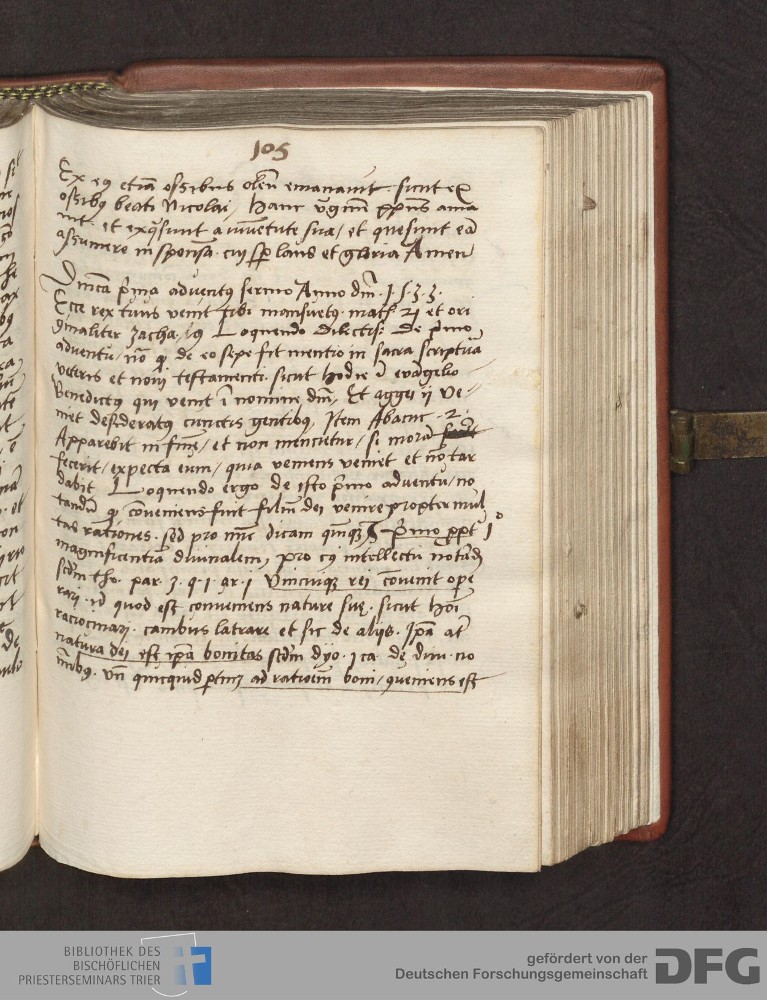 105
Ex eꝰ etiā ossibus oleū emanauit sicut ex
ossibꝰ beati Nicolai, hanc v̄gīnē ama
uit et exqͥsiuit a iuuētute sua, et quesiuit eā
assumere in sponsā. cui sꝑ laus et gloria Amen
Dn̄ica p̄ma aduentꝰ sermo Anno dn̄i. 1533.
Ecce rex tuus venit tibi mansuetꝰ. math. 21 et ori
ginaliter zacha. Loquendo dilectisͥ. de p̄mo
aduentu, nō de eo sepe fit mentio in sacra scriptura
veteris et noui testamenti. sicut hodie ī euāgelio
Benedictꝰ qui venit ī nomine dn̄i, Et aggei ij ve-
niet desideratꝰ cunctis gentibꝰ, Item Abacuc. 2.
Apparebit in finē, et non mencietur, si morā
fecerit, expecta eum, quia veniens veniet et nō tar
dabit Loquendo ergo de isto p̄mo aduentu, no
tandū qͩ conueniens fuit filiū dei venire propter mul
tas rationes. sed pro nūc dicam qūqꝫ p̄mo ꝓpt 1°
magnificentiā diuinalem, pro cꝰ intellectu notādū
scdm̄ tho. par. 3. q. 1. ar. 1 Vnicuiqꝫ rei cōuenit ope
rari. id quod est conueniens nature suę. sicut hoī
raciocinari. canibus latrare et sic de aliis. Ipā at̄
natura dei est ipā bonitas scdm̄ dyo. 1 ca. de diui. no
minibꝰ. Vn̄ quicquid ꝑtinꝫ ad rationem boni, cōueniens est
BIBLIOTHEK DES
BISCHÖFLICHEN
PRIESTERSEMINARS TRIER
gefördert von der
Deutschen Forschungsgemeinschaft
DFG